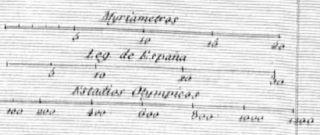 Myriametros
5 10 15 20
Leg. de España
5 10 20 30
Estadios Olympicos
100 200 400 600 800 1000 1200